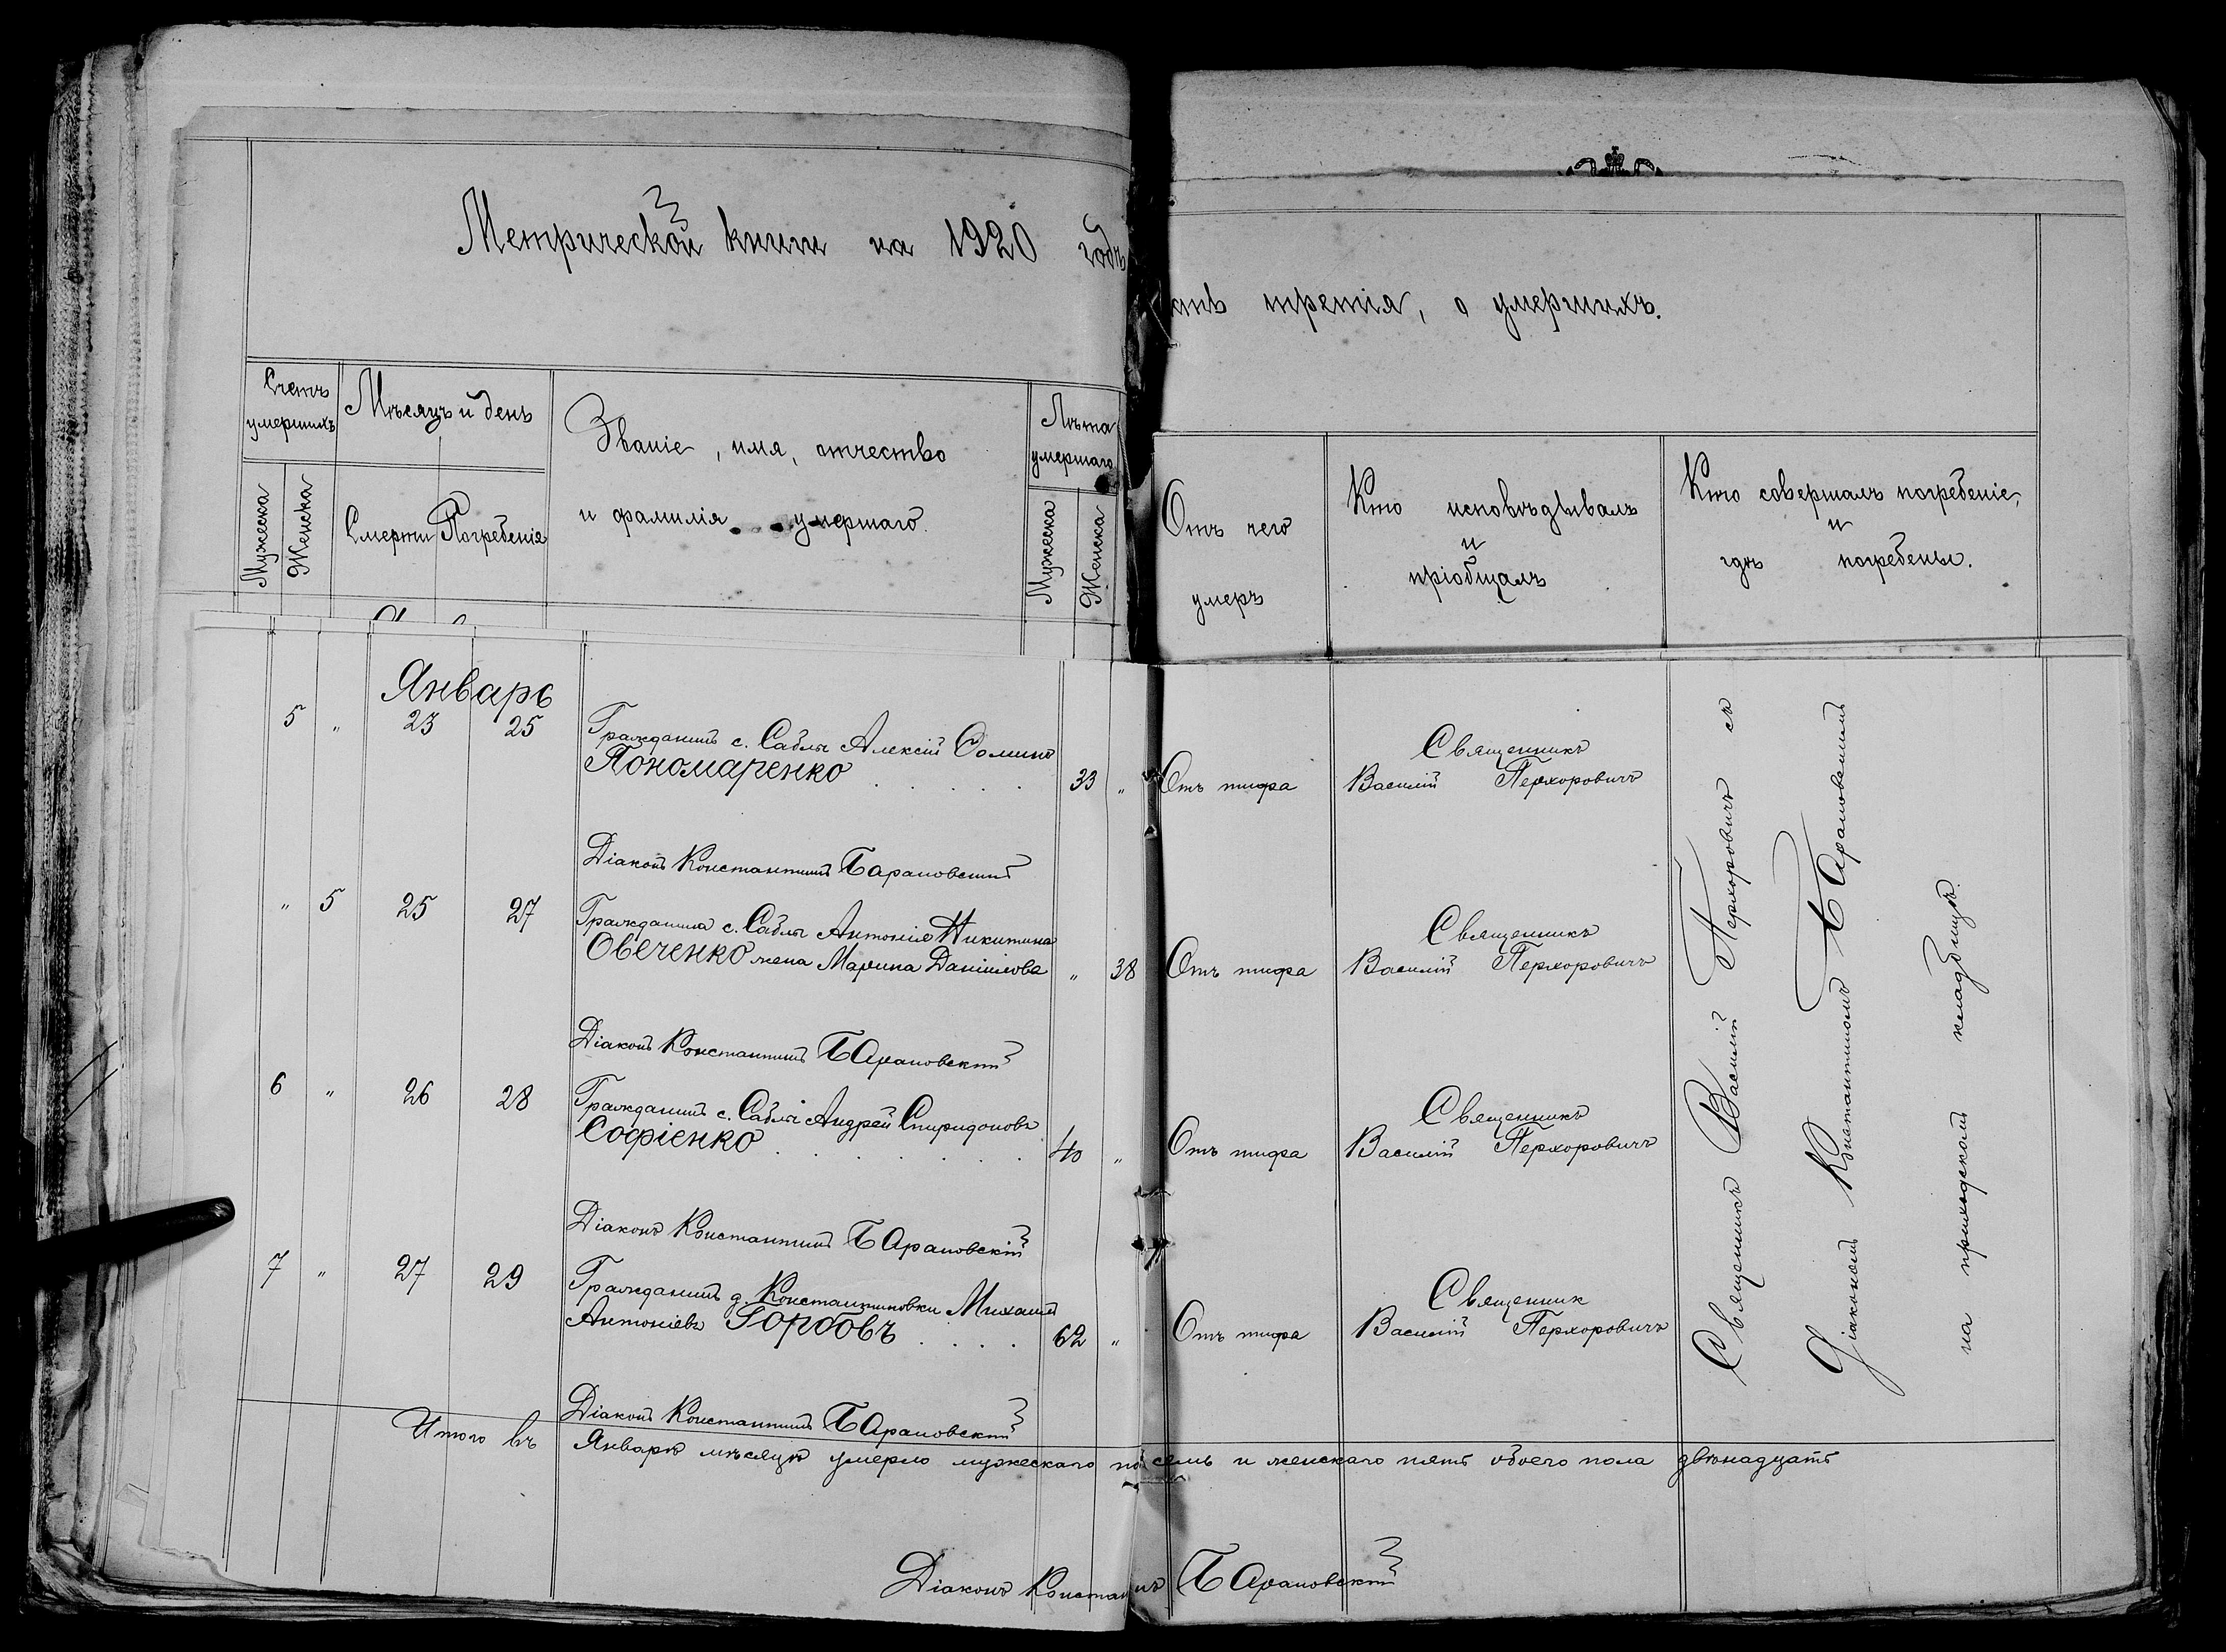 Метрической книги на 1920 годъ
сть третія, о умершихъ.
Счетъ умершихъ
Мужеска
Женска
Мѣсяцъ и день
Смерти
Погребенія
Званіе, имя, отчество
и фамилія умершаго.
Лѣта умершаго
Мужеска
Женска
Отъ чего
умеръ
Кто исповѣдывалъ
и
пріобщалъ
Кто совершалъ погребеніе,
и
гдѣ погребены.
Январь
5 " 23 25 Гражданинъ с. Саблы Алексій Ѳоминъ
Пономаренко 33 " Отъ тифа Священникъ
Василій Перхоровичъ
Діаконъ Константинъ Барановскій
" 5 25 27 Гражданина с. Саблы Антонія Никитина
Овеченко жена Марина Даніилова " 38 Отъ тифа Священникъ
Василій Перхоровичъ
Діаконъ Константинъ Барановскій
6 " 26 28 Гражданинъ с. Саблы Андрей Спиридоновъ
Софіенко 40 " Отъ тифа Священникъ
Василій Перхоровичъ
Діаконъ Константинъ Барановскій
7 " 27 29 Гражданинъ д. Константиновки Михаилъ
Антоніевъ Горбовъ 62 " Отъ тифа Священник
Василій Перхоровичъ
Діаконъ Константинъ Барановскій
Священникъ Василій Перхоровичъ съ
Діакономъ Константиномъ Барановскимъ
на приходскомъ кладбищѣ.
Итого въ Январѣ мѣсяцѣ умерло мужескаго по семь и женскаго пять обоего пола двѣнадцать
Діаконъ Констан нъ Барановскій